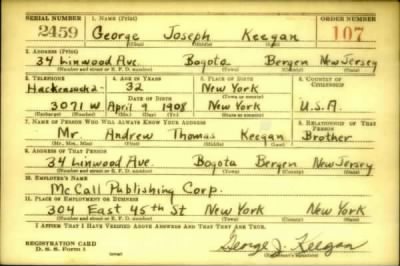 SERIAL NUMBER 1. NAME (Print) ORDER NUMBER
2459 George Joseph Keegan 107
(First) (Middle) (Last)
2. ADDRESS (Print)
34 Linwood Ave. Bogota Bergen New Jersey
(Number and street or R. F. D. number) (Town) (County) (State)
3. TELEPHONE 4. AGE IN YEARS 5. PLACE OF BIRTH 6. COUNTRY OF CITIZENSHIP
Hackensack 2- 32 New York
DATE OF BIRTH
3071 W April 9 1908 New York U.S.A.
(Exchange) (Number) (Mo.) (Day) (Yr.) (State or country)
7. NAME OF PERSON WHO WILL ALWAYS KNOW YOUR ADDRESS 8. RELATIONSHIP OF THAT PERSON
Mr. Andrew Thomas Keegan Brother
(Mr., Mrs., Miss) (First) (Middle) (Last)
9. ADDRESS OF THAT PERSON
34 Linwood Ave. Bogota Bergen New Jersey
(Number and street or R. F. D. number) (Town) (County) (State)
10. EMPLOYER'S NAME
McCall Publishing Corp.
11. PLACE OF EMPLOYMENT OR BUSINESS
304 East 45th St New York New York
(Number and street or R. F. D. number) (Town) (County) (State)
I AFFIRM THAT I HAVE VERIFIED ABOVE ANSWERS AND THAT THEY ARE TRUE.
REGISTRATION CARD
D. S. S. Form 1 George J. Keegan
(over) (Registrant's signature)